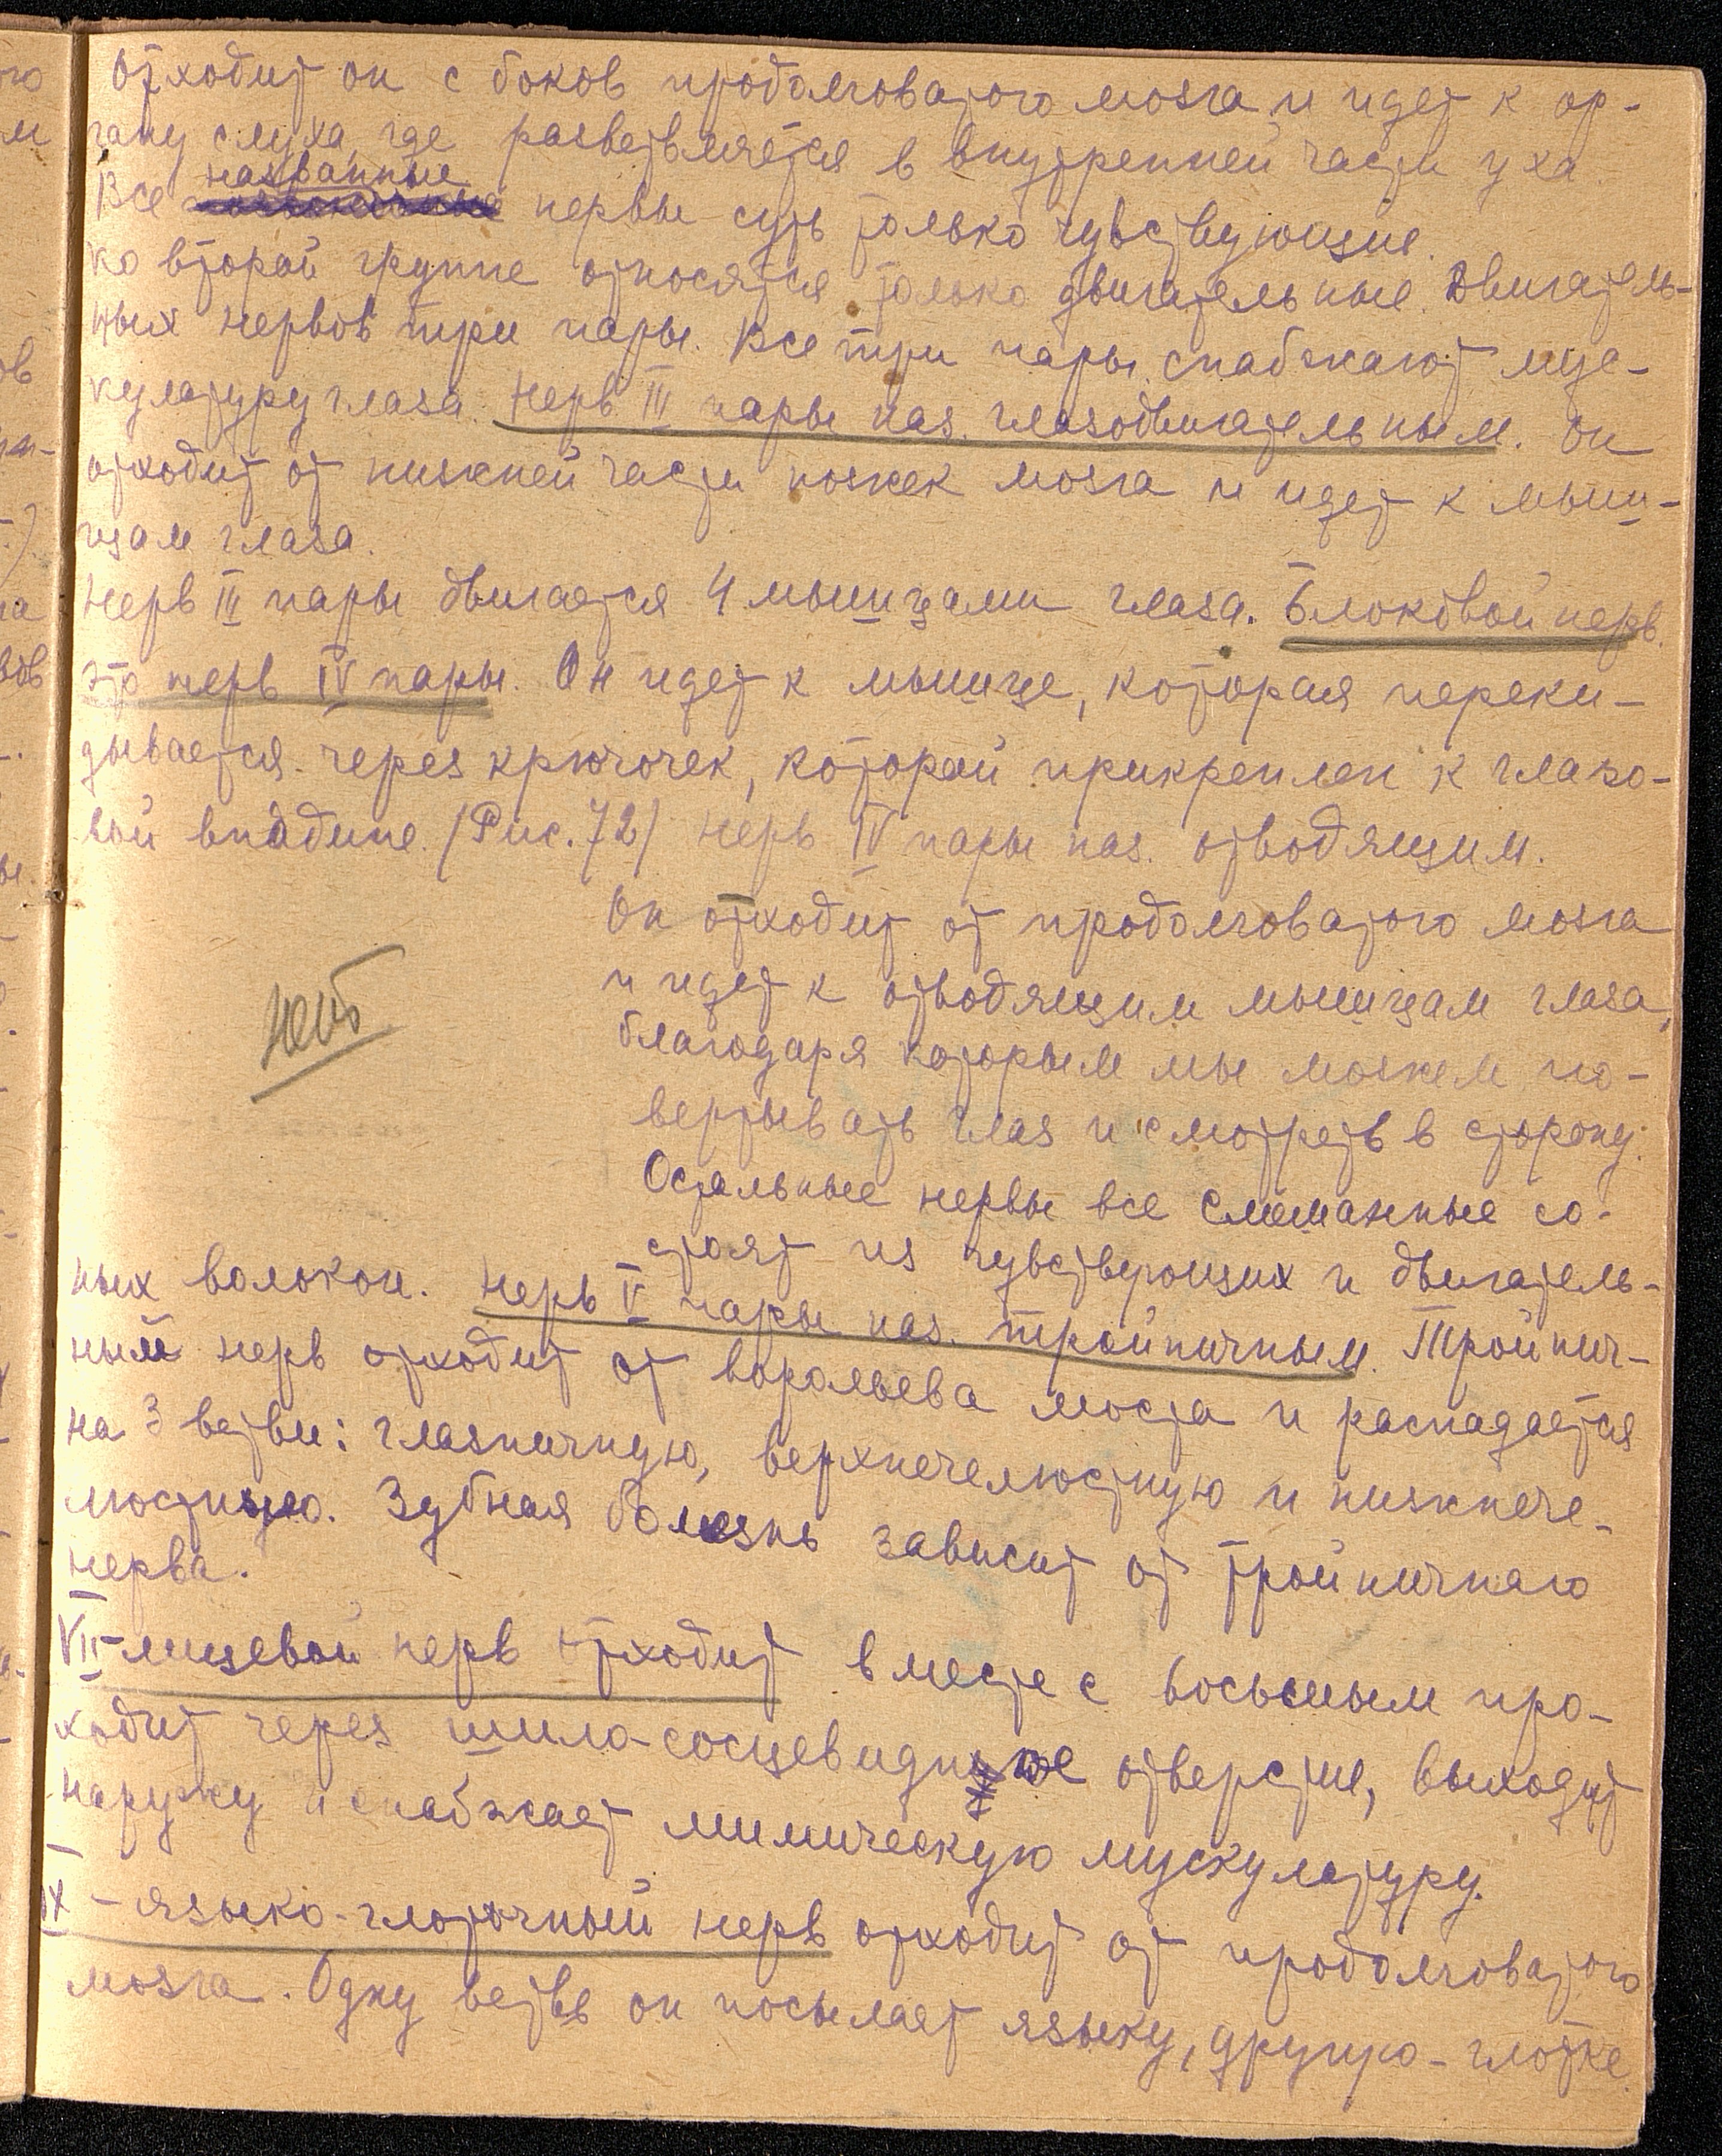 Отходит он с боков продолговатого мозга и идет к ор-
гану слуха, где разветвляется в внутренней части уха.
названные
Все нервы суть только чувствующие.
Ко второй группе относятся только двигательные. Двигатель-
ных нервов три пары. Все три пары снабжают мус-
кулатуру глаза. Нерв III пары наз. глазодвигательным. Он
отходит от нижней части ножек мозга и идет к мыш-
цам глаза.
Нерв III пары двигается 4 мышцами глаза. Блоковой нерв.
это нерв IV пары. Он идет к мышце, которая переки-
дывается через крючочек, который прикреплен к глазо-
вой впадине. (Рис. 72) Нерв IV пары наз. отводящим.
Он отходит от продолговатого мозга
и идет к отводящим мышцам глаза,
благодаря которым мы можем по-
вертывать глаз и смотреть в сторону.
Остальные нервы все смешанные со-
стоят из чувствующих и двигатель-
ных волокон. Нерв V пары наз. тройничным. Тройнич-
ный нерв отходит от воральева моста и распадается
на 3 ветви: глазничную, верхнечелюстную и нижнече-
люстную. Зубная болезнь зависит от тройничнаго
нерва.
VII-лицевой нерв отходит вместе с восьмым про-
ходит через шило-сосцевидное отверстие, выходит
наружу и снабжает мимическую мускулатуру.
IX - языко-глоточный нерв отходит от продолговатого
мозга. Одну ветвь он посылает языку, другую - глотке.